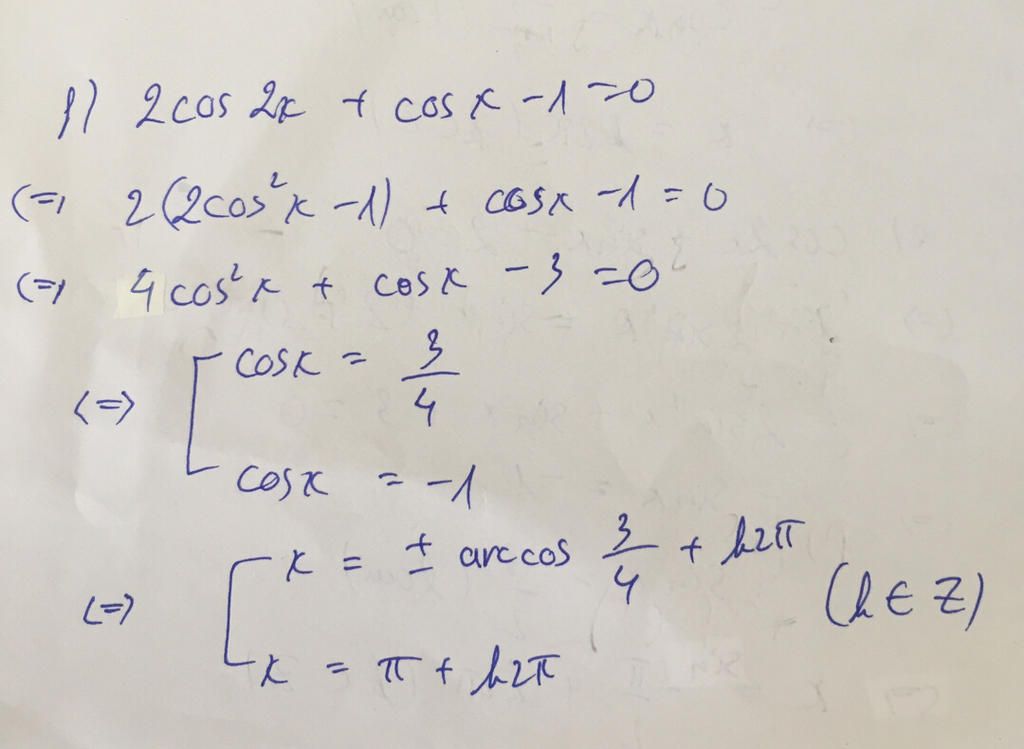 f) 2cos 2x + cos x - 1 = 0
<=> 2(2cos²x - 1) + cosx - 1 = 0
<=> 4cos²x + cosx - 3 = 0
<=> [ cosx = 3/4
cosx = -1
<=> [ x = ± arccos 3/4 + k2π (k ∈ Z)
x = π + k2π